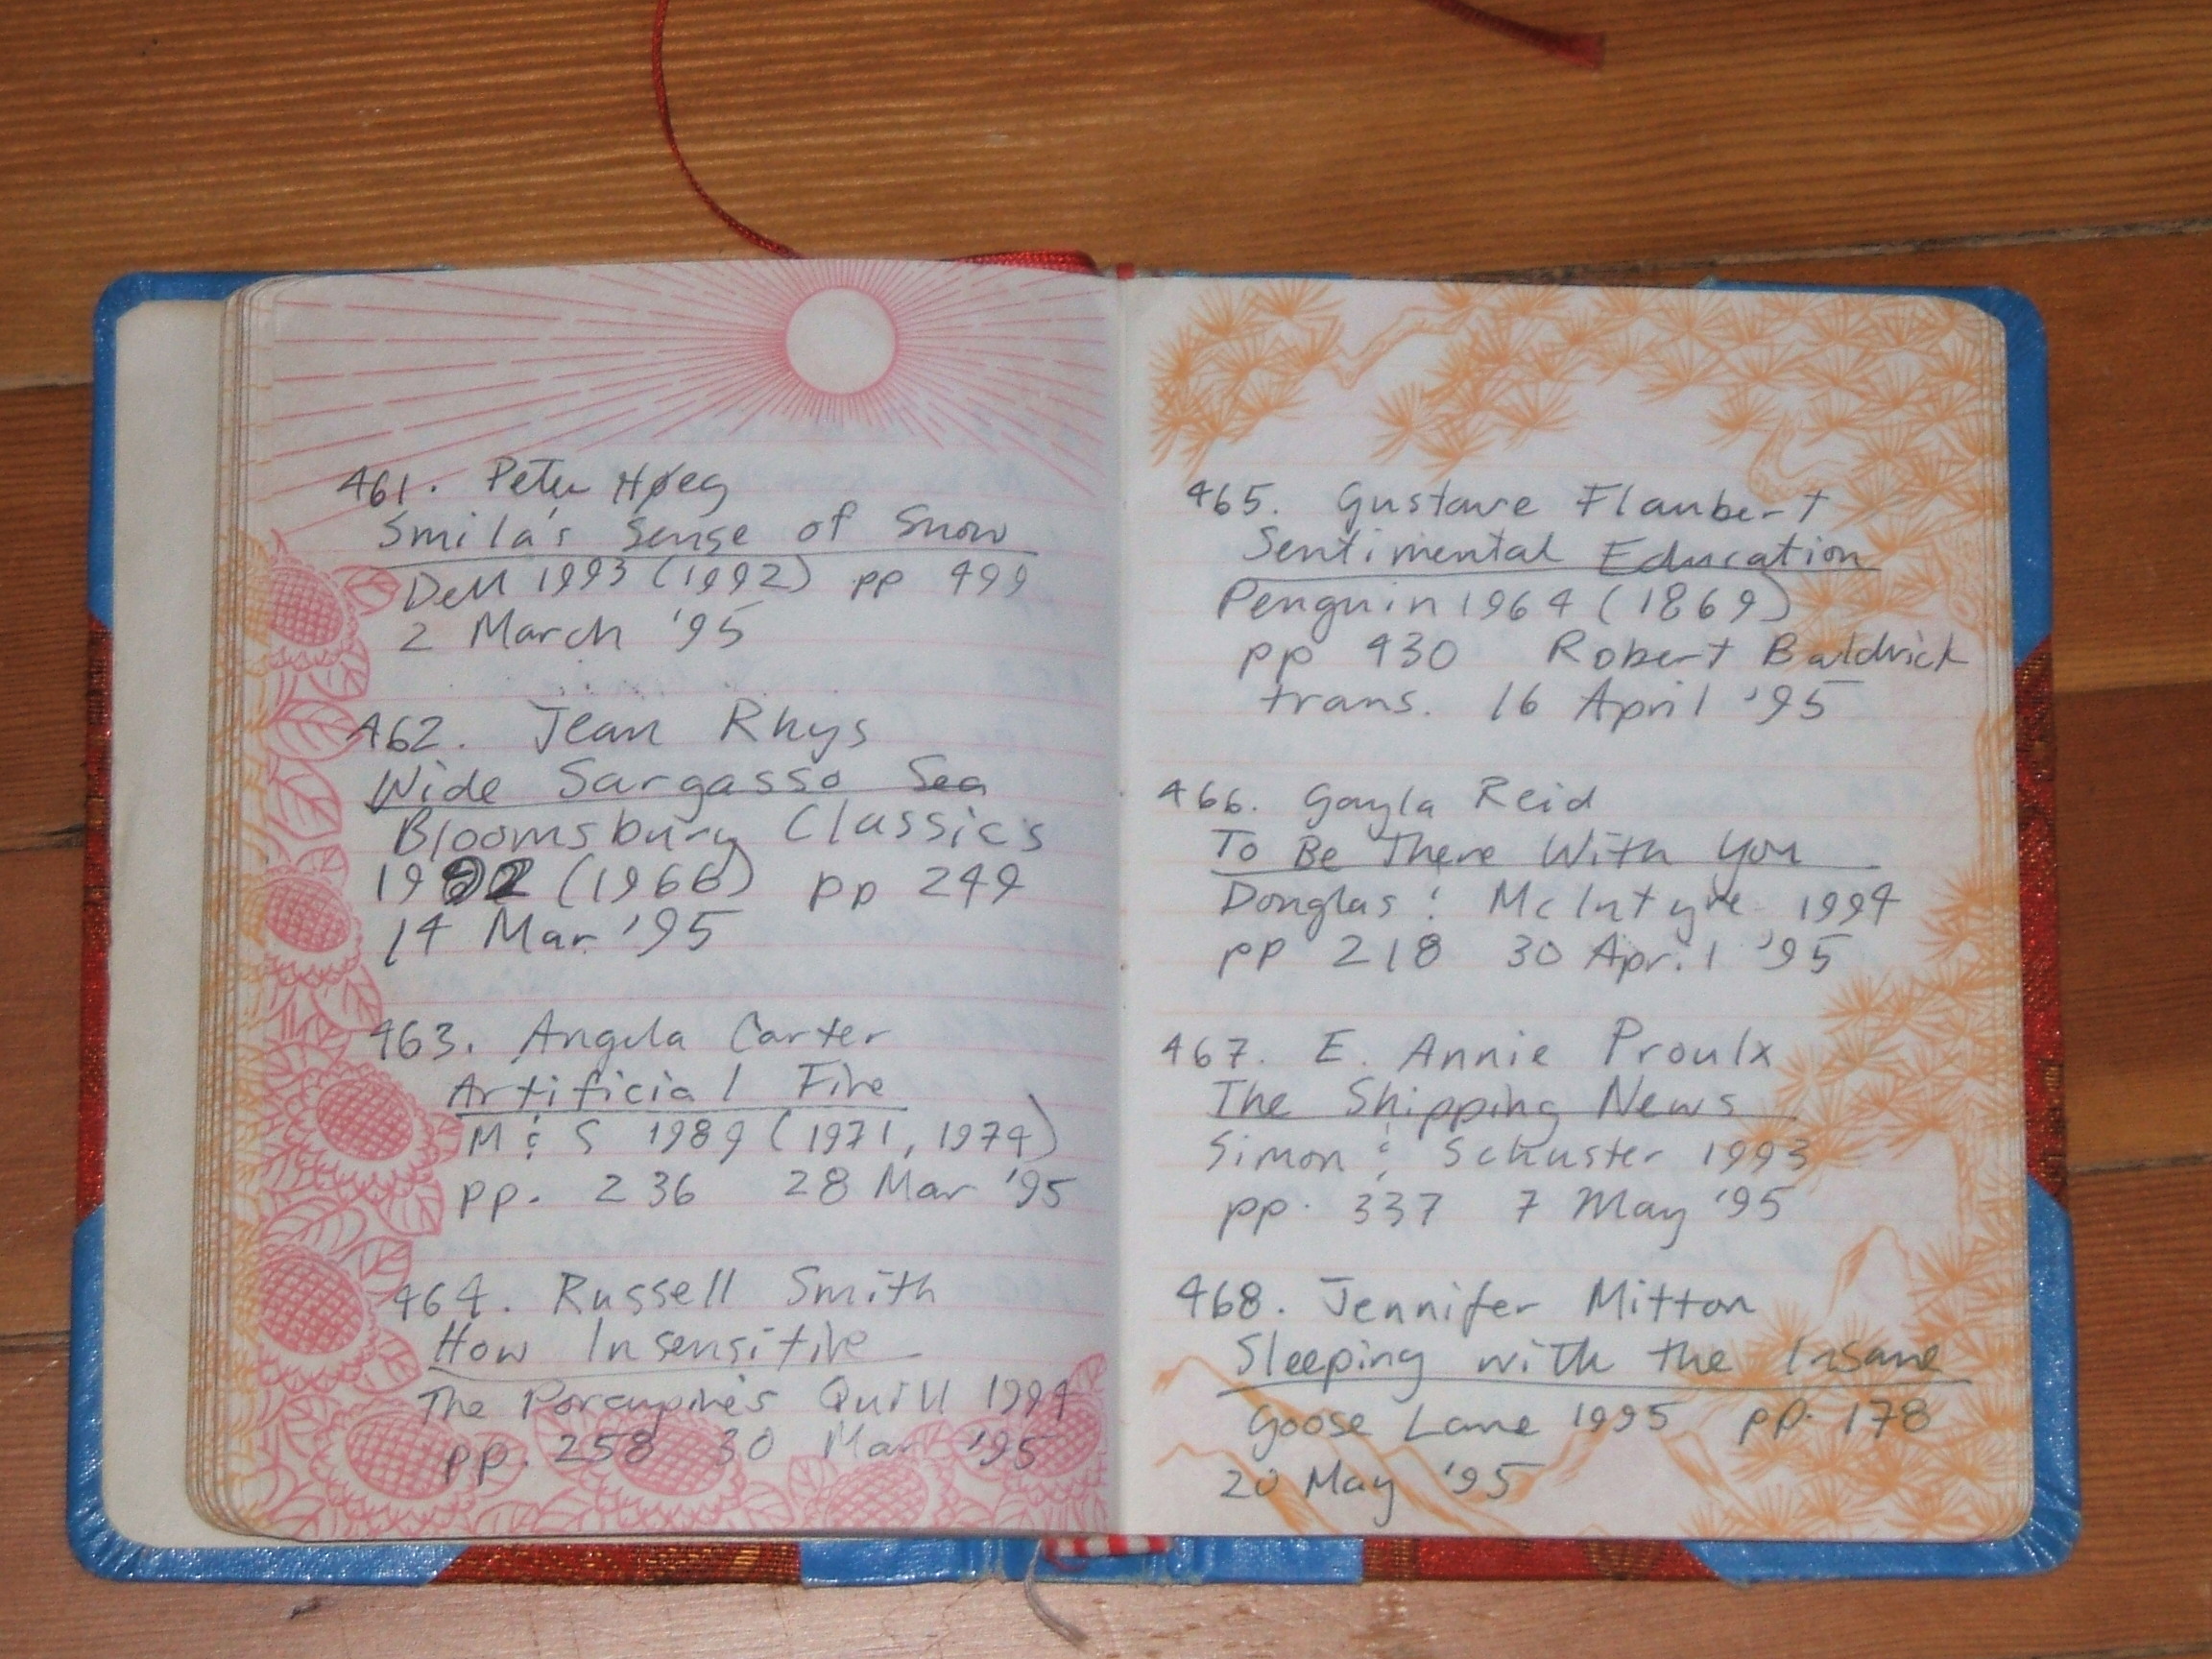 461. Peter Høeg
Smila's Sense of Snow
Dell 1993 (1992) pp 499
2 March '95
462. Jean Rhys
Wide Sargasso Sea
Bloomsbury Classics
1992 (1966) pp 249
14 Mar '95
463. Angela Carter
Artificial Fire
M & S 1989 (1971, 1974)
pp. 236 28 Mar '95
464. Russell Smith
How Insensitive
The Porcupine's Quill 1994
pp. 258 30 Mar '95
465. Gustave Flaubert
Sentimental Education
Penguin 1964 (1869)
pp 430 Robert Baldrick
trans. 16 April '95
466. Gayla Reid
To Be There With You
Douglas & McIntyre 1994
pp 218 30 April '95
467. E. Annie Proulx
The Shipping News
Simon & Schuster 1993
pp. 337 7 May '95
468. Jennifer Mitton
Sleeping with the Insane
Goose Lane 1995 pp. 178
20 May '95